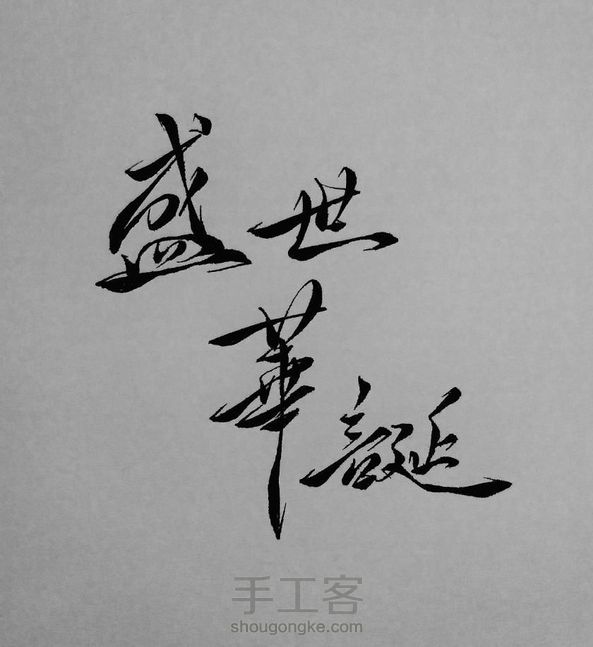 盛世
華誕
手工客
shougongke.com